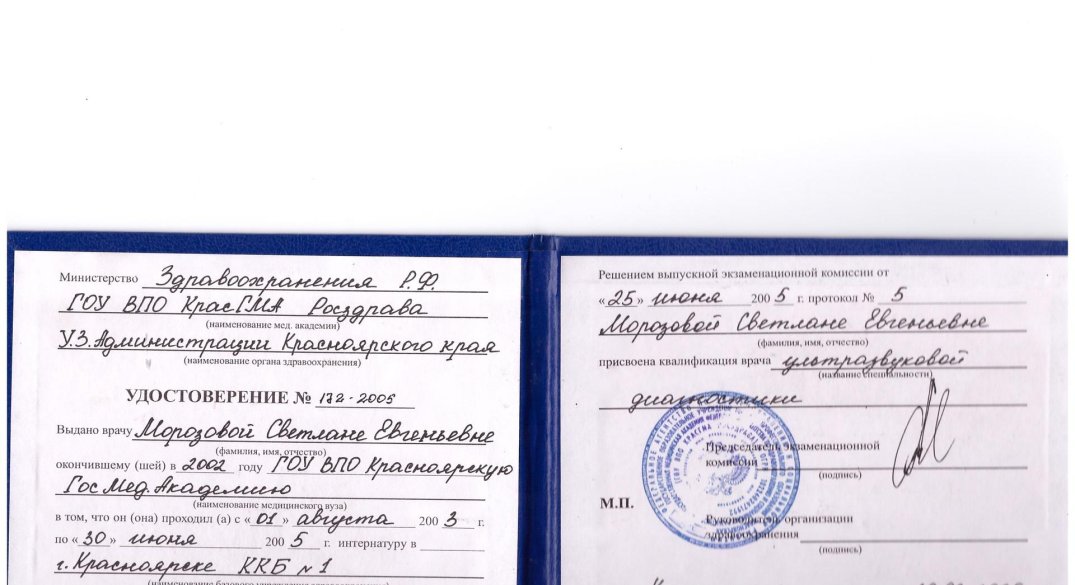 Министерство Здравоохранения Р.Ф.
ГОУ ВПО КрасГМА Росздрава
(наименование мед. академии)
У.З. Администрации Красноярского края
(наименование органа здравоохранения)
УДОСТОВЕРЕНИЕ № 172-2005
Выдано врачу Морозовой Светлане Евгеньевне
(фамилия, имя, отчество)
окончившему (шей) в 2002 году ГОУ ВПО Красноярскую
Гос Мед. Академию
(наименование медицинского вуза)
в том, что он (она) проходил (а) с «01» августа 2003 г.
по «30» июня 2005 г. интернатуру в
г. Красноярске ККБ №1
Решением выпускной экзаменационной комиссии от
«25» июня 2005 г. протокол № 5
Морозовой Светлане Евгеньевне
(фамилия, имя, отчество)
присвоена квалификация врача ультразвуковой
(название специальности)
диагностики
Председатель экзаменационной
комиссии
(подпись)
М.П.
Руководитель организации
здравоохранения
(подпись)